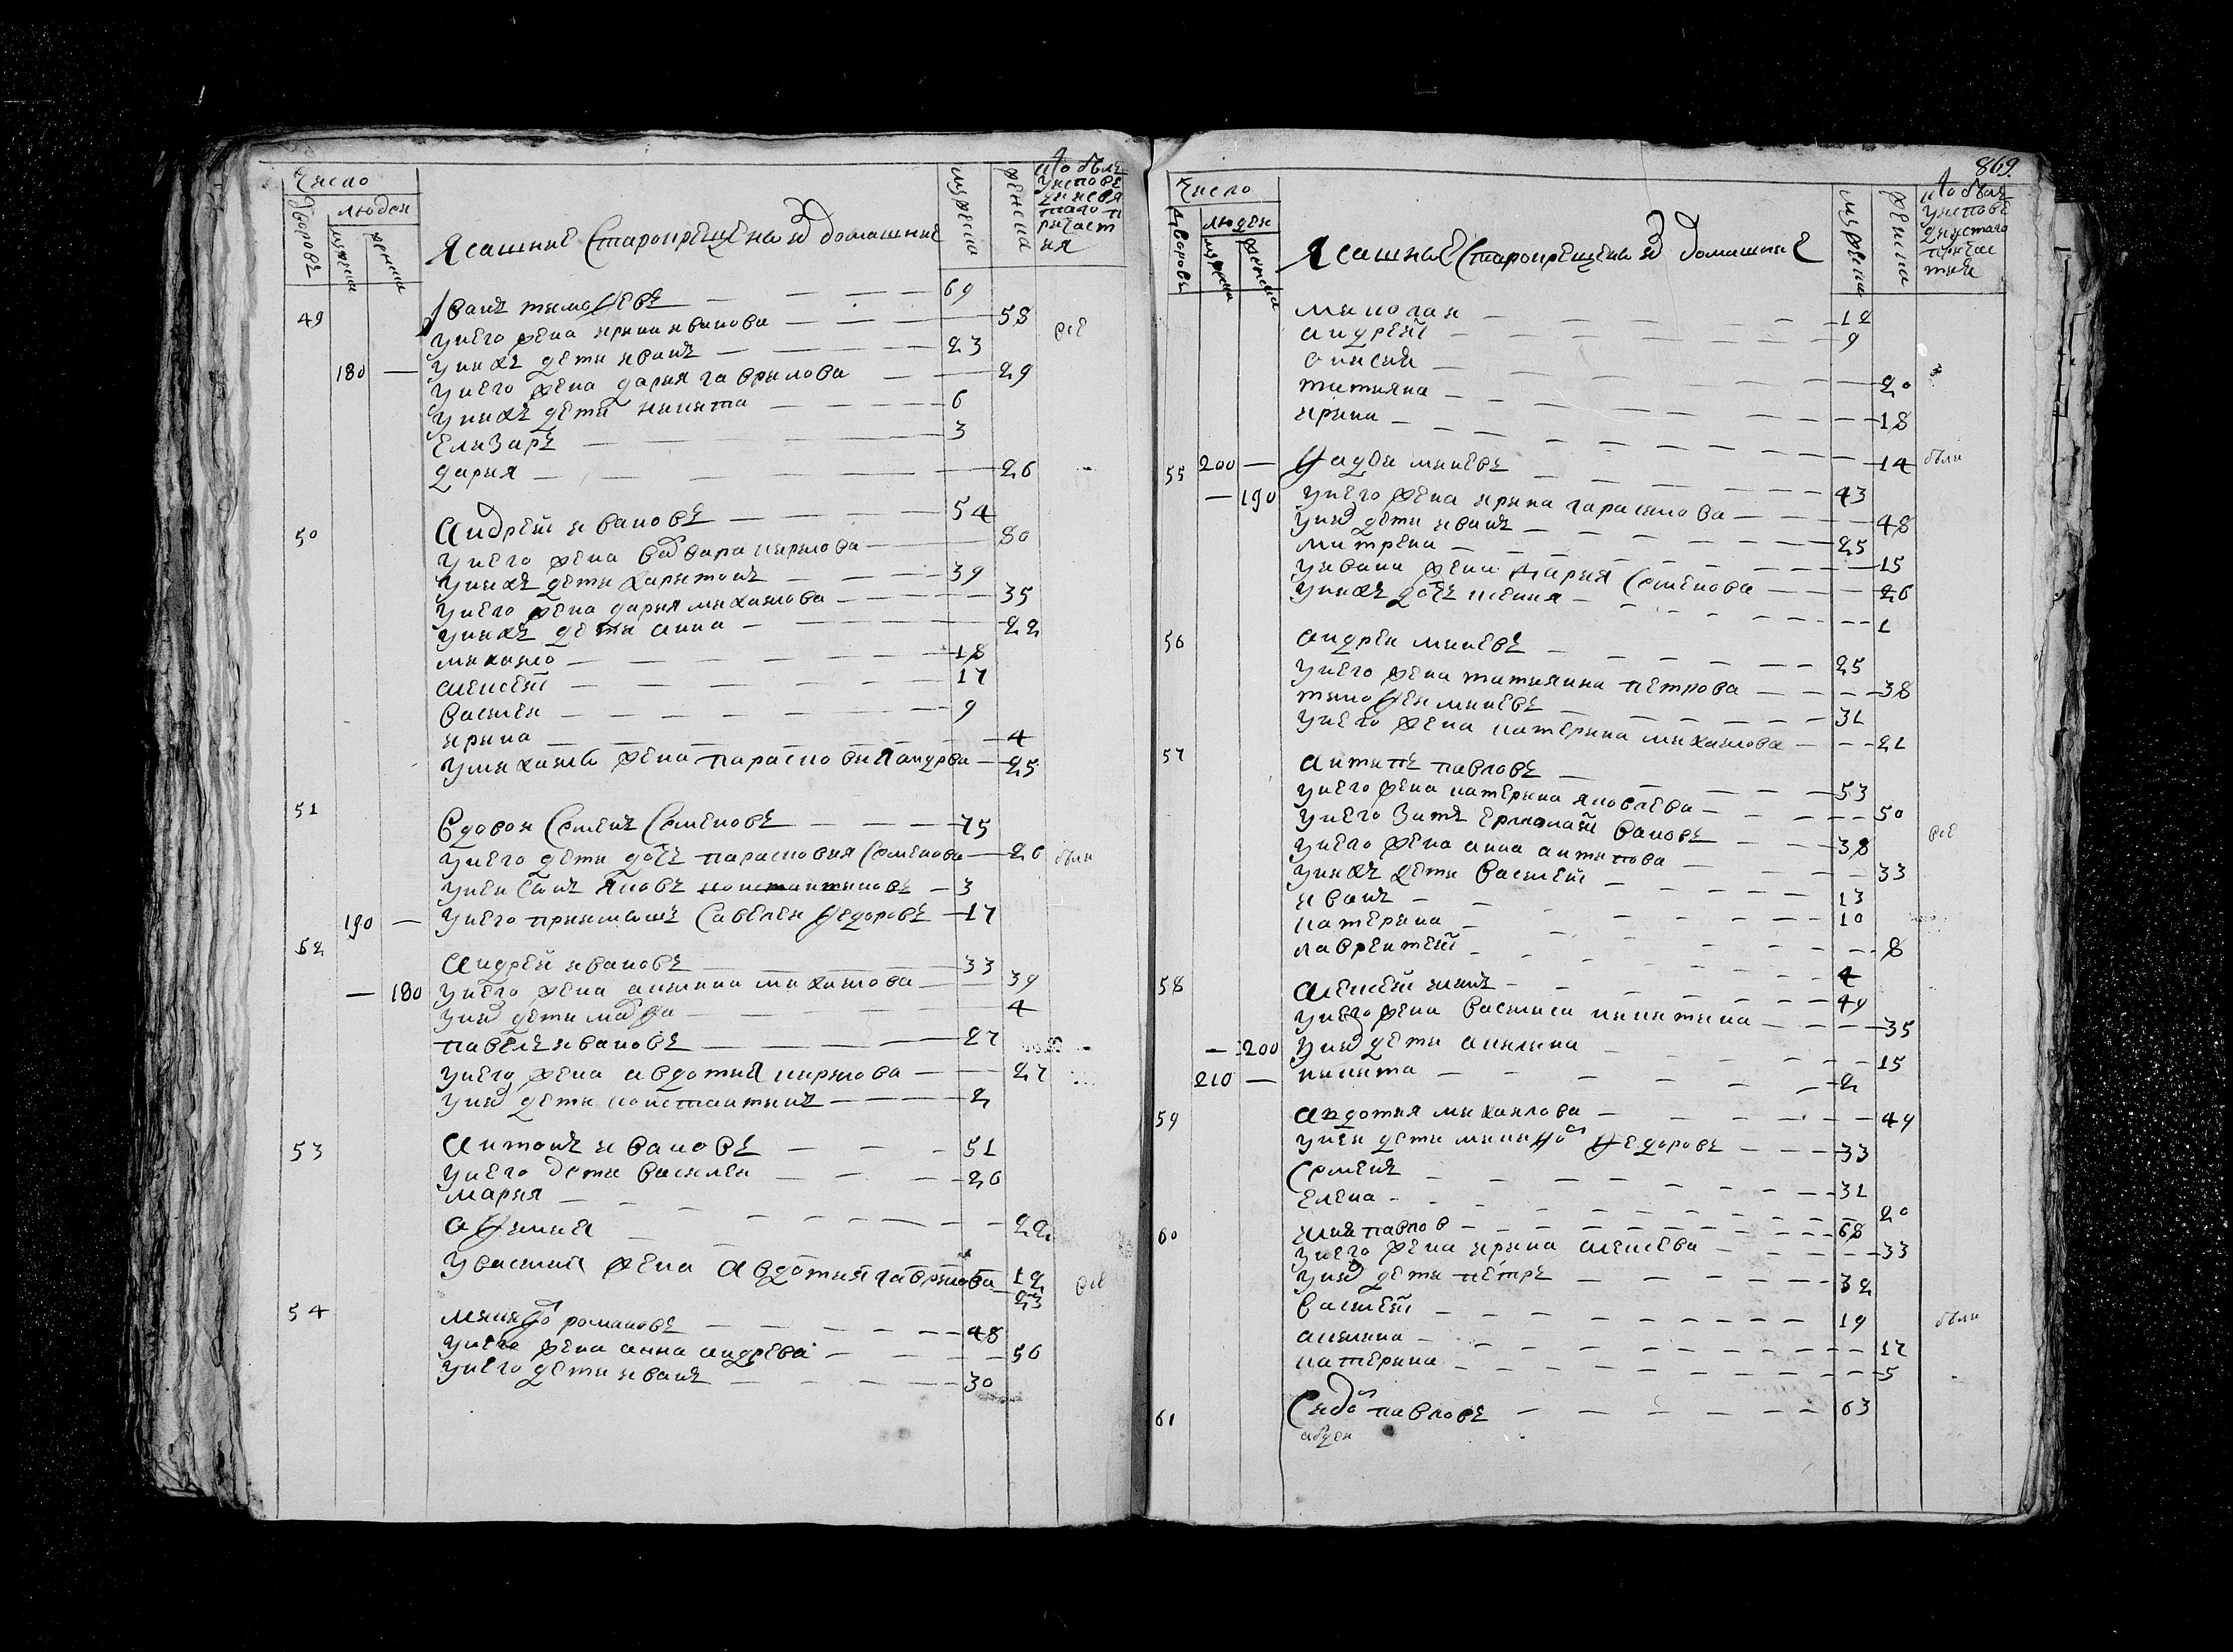 Число
дворовъ
людеи
мужеска
женска
Ясашние Старокрещены и домашние
мужеска
женска
кто былъ у исповеди и светаго причастия
49 Иванъ тимофевъ — 69
у него жена ирина иванова — 58 все
у нихъ дети иванъ — 23
180 — у него жена дария гаврилова — 29
у нихъ дети никита — 6
елизаръ — 3
дария — 26
50 Андрей ивановъ — 54
у него жена варвара кирилова — 80
у нихъ дети харитонъ — 39
у него жена дария михаилова — 35
у нихъ дети анна — 22
михаило — 18
алексей — 17
василеи — 9
ирина — 4
у михаила жена парасковия андрева — 25
51 вдовои Семенъ Семеновъ — 75
у него дети дочъ парасковия Семенова — 26 были
у неи сынъ яковъ константиновъ — 3
190 — у него приимашъ Савелеи федоровъ — 17
52 Андрей ивановъ — 33
— 180 у него жена акилина михаилова — 39
у них дети марфа — 4
павелъ ивановъ — 27
у него жена авдотия кирилова — 27
у них дети константинъ — 2
53 Антонъ ивановъ — 51
у него дети василеи — 26
мария
афимия — 22
у василия жена Авдотия гаврилова — 12
23 все
54 никифо романовъ — 48
у него жена анна андрева — 56
у него дети иванъ — 30
869.
Число
дворовъ
людеи
мужеска
женска
Ясашные Старокрещены и домашние
мужеска
женска
кто былъ у исповеди и стаго причастия
миколаи — 12
андрей — 9
анисия
титияна — 20
ирина — 18
55 200 — Фадеи микевъ — 14 были
— 190 у него жена ирина гарасимова — 43
у них дети иванъ — 48
митрена — 25
у ивана жена дария Семенова — 15
у нихъ дочъ ксения — 26
1
56 андреи микевъ — 25
у него жена титиянна петрова — 38
тимофеи микевъ — 31
у него жена катерина михаилова — 21
57 Антипъ павловъ — 53
у него жена катерина яковлева — 50
у него зятъ ермолай ивановъ — 38 все
у него жена анна антипова — 33
у нихъ дети василей
иванъ — 13
катерина — 10
лаврентей — 8
58 алексей илинъ — 4
у него жена василиса никитина — 49
35
— 200 у них дети акилина — 15
210 — никита — 2
59 авдотия михаилова — 49
у неи дети никифо федоровъ — 33
Семенъ — 31
елена — 20
60 илия павлов — 68
у него жена ирина алексева — 33
у них дети петръ — 32
василей — 19 были
акилина — 17
катерина — 5
61 Сидо павловъ — 63